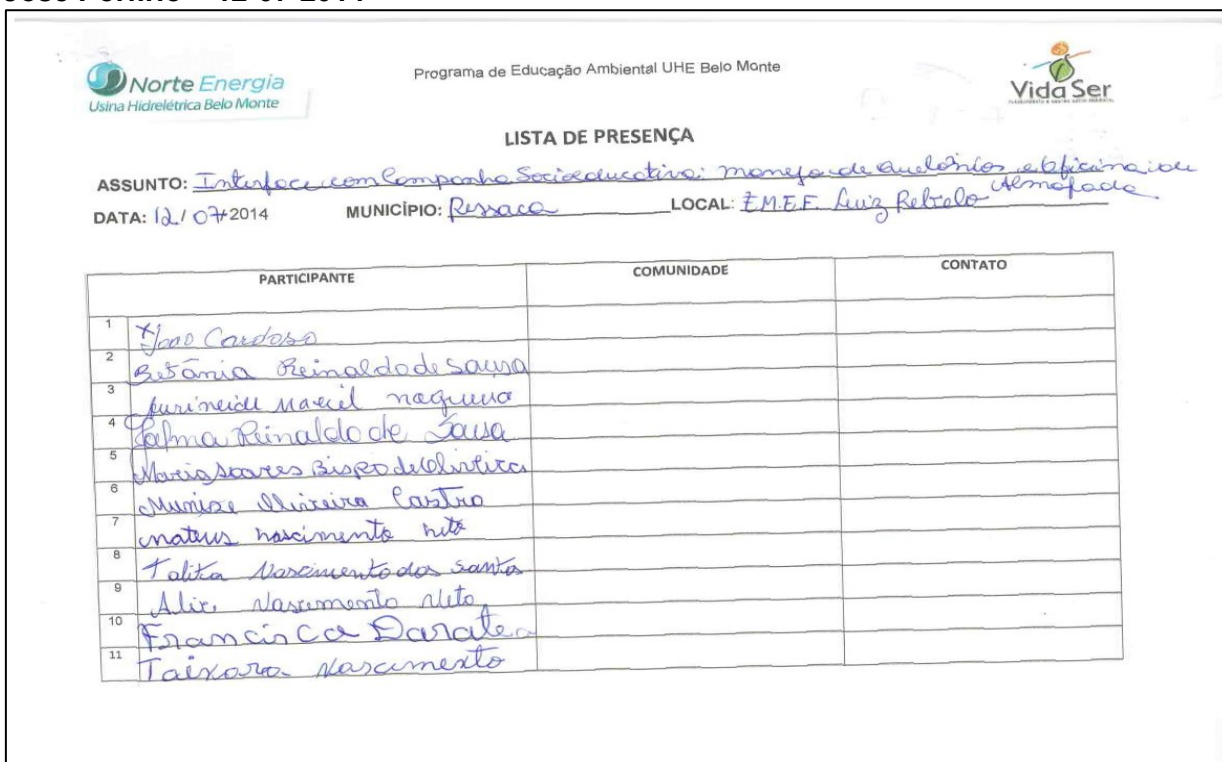 12-07-2014
Norte Energia
Usina Hidrelétrica Belo Monte
Programa de Educação Ambiental UHE Belo Monte
Vida Ser
LISTA DE PRESENÇA
ASSUNTO: Interface com Campanha Socioeducativa: manejo de quelônios e Oficina de Almofada
DATA: 12/07/2014 MUNICÍPIO: Ressaca LOCAL: E.M.E.F. Luiz Rebelo
PARTICIPANTE COMUNIDADE CONTATO
1 Joao Cardoso
2 Betânia Reinaldo de Sousa
3 Maciel
4 Reinaldo de Sousa
5 Maria Soares Bispo de Oliveira
6 Castro
7 mateus nascimento neto
8 Talita Nascimento dos Santos
9 Nascimento Neto
10 Francisca
11 Nascimento